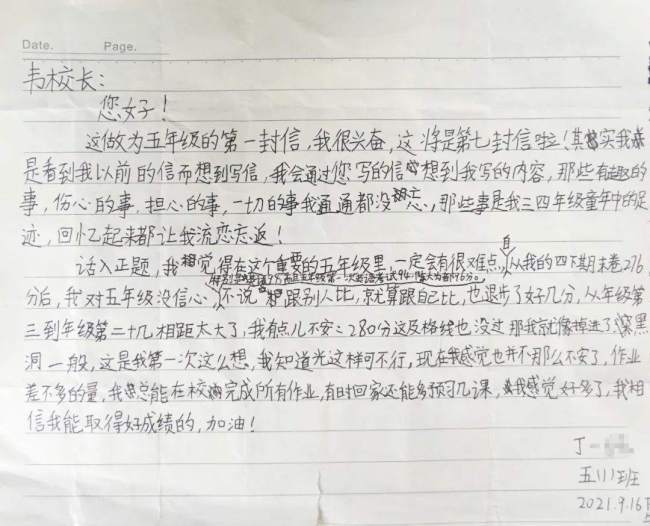 Date.  Page.
韦校长:
您好!
这做为五年级的第一封信,我很兴奋,这将是第七封信啦!其实我
是看到我以前的信而想到写信,我会通过您写的信想到我写的内容,那些有趣的
事,伤心的事,担心的事,一切的事我通通都没忘,那些事是我三四年级童年中的足
迹,回忆起来都让我流恋忘返!
话入正题,我觉得在这个重要的五年级里一定会有很难点,自从我的四下期末卷276
分后,我对五年级没信心,不说想跟别人比,就算跟自比,也退步了好几分,从年级第
三到年级第二十几相距太大了,我有点儿不安:280分这及格线也没过那我就像掉进了深黑
洞一般,这是我第一次这么想,我知道光这样可不行,现在我感觉也并不那么不安了,作业
差不多的量,我总能在校内完成所有作业,有时回家还能多预习几课,我感觉好多了,我相
信我能取得好成绩的,加油!
丁一
五(1)班
2021.9.16